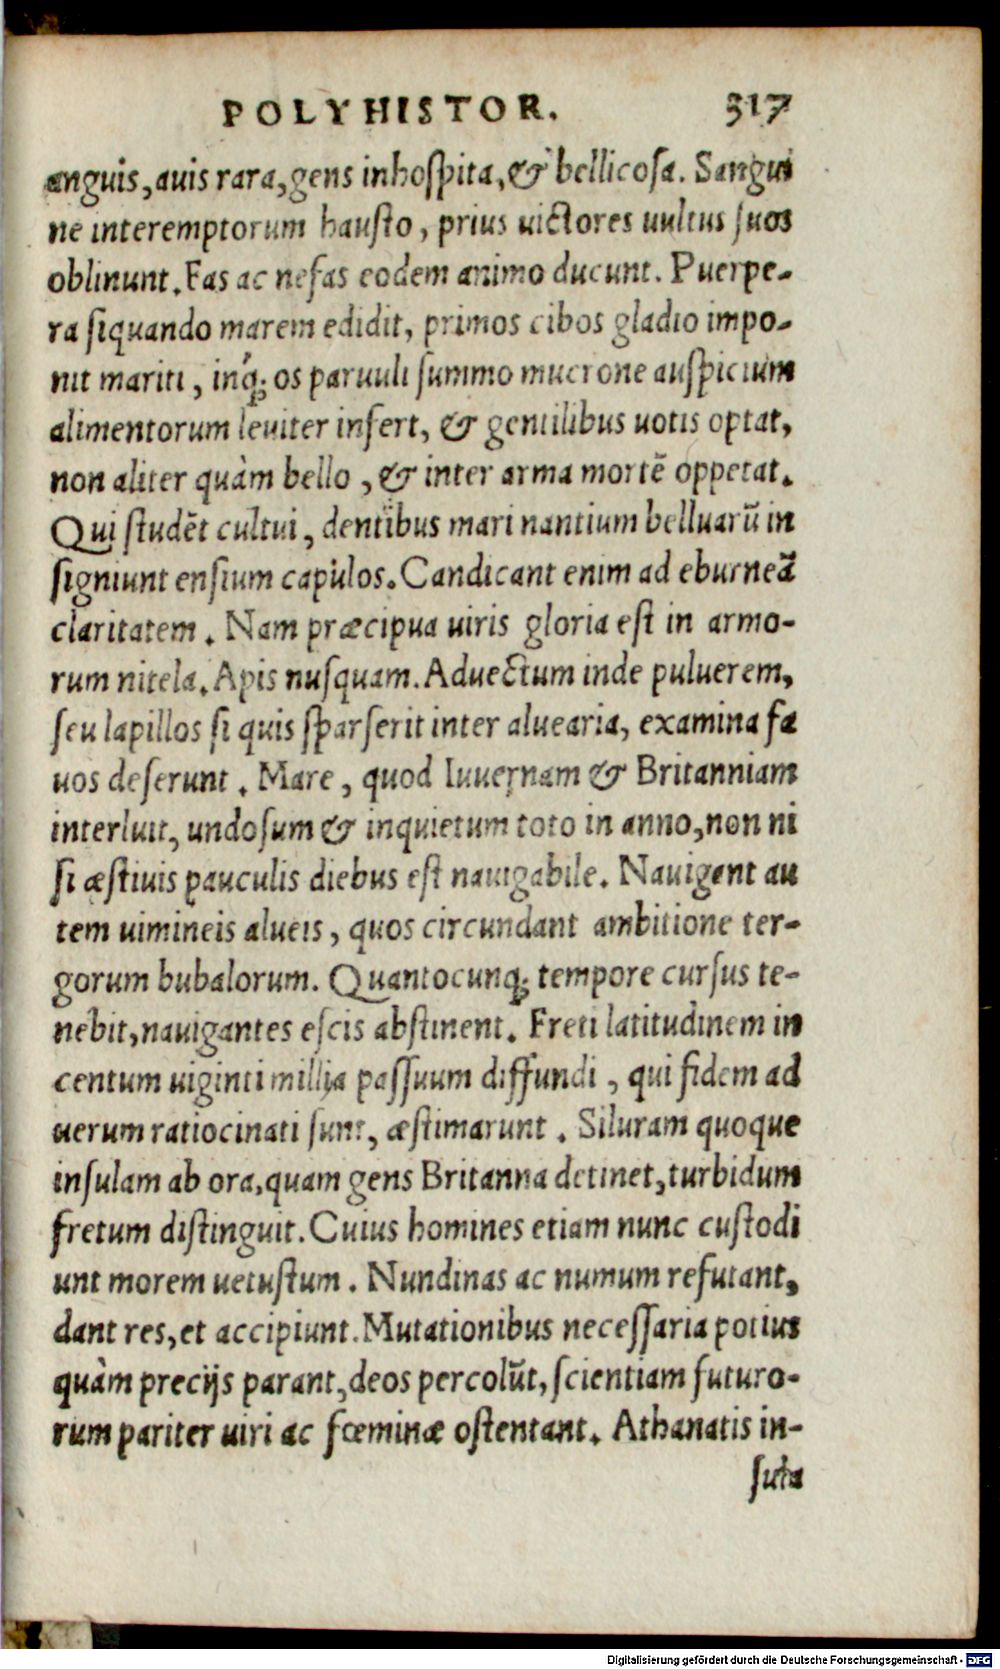 POLYHISTOR. 317
anguis, auis rara, gens inhospita, & bellicosa. Sangui
ne interemptorum hausto, prius uictores uultus suos
oblinunt. Fas ac nefas eodem animo ducunt. Puerpe-
ra siquando marem edidit, primos cibos gladio impo-
nit mariti, inq́; os paruuli summo mucrone auspicium
alimentorum leuiter infert, & gentilibus uotis optat,
non aliter quàm bello, & inter arma mortē oppetat.
Qui studēt cultui, dentibus mari nantium belluarū in
signiunt ensium capulos. Candicant enim ad eburneā
claritatem. Nam præcipua uiris gloria est in armo-
rum nitela. Apis nusquam. Aduectum inde puluerem,
seu lapillos si quis sparserit inter aluearia, examina fa
uos deserunt. Mare, quod Iuuernam & Britanniam
interluit, undosum & inquietum toto in anno, non ni
si æstiuis pauculis diebus est nauigabile. Nauigant au
tem uimineis alueis, quos circundant ambitione ter-
gorum bubalorum. Quantocunq; tempore cursus te-
nebit, nauigantes escis abstinent. Freti latitudinem in
centum uiginti millia passuum diffundi, qui fidem ad
uerum ratiocinati sunt, æstimarunt. Siluram quoque
insulam ab ora, quam gens Britanna detinet, turbidum
fretum distinguit. Cuius homines etiam nunc custodi
unt morem uetustum. Nundinas ac numum refutant,
dant res, et accipiunt. Mutationibus necessaria potius
quàm precijs parant, deos percolūt, scientiam futuro-
rum pariter uiri ac fœminæ ostentant. Athanatis in-
sula
Digitalisierung gefördert durch die Deutsche Forschungsgemeinschaft - DFG